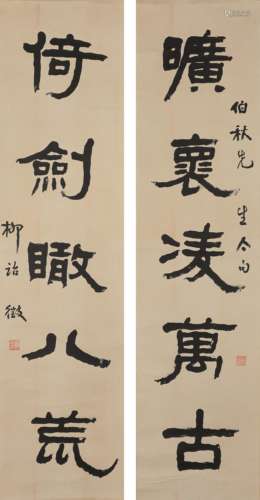 曠裏凌萬古
伯秋先生令句
倚劍瞰八荒
柳詒徵